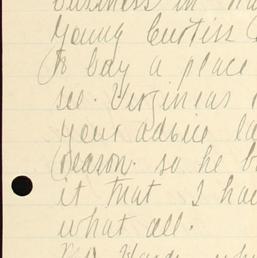 business in
Young Curtiss
to buy a place
see. Virginius
your advice
reason. so he
it that I had
what all.